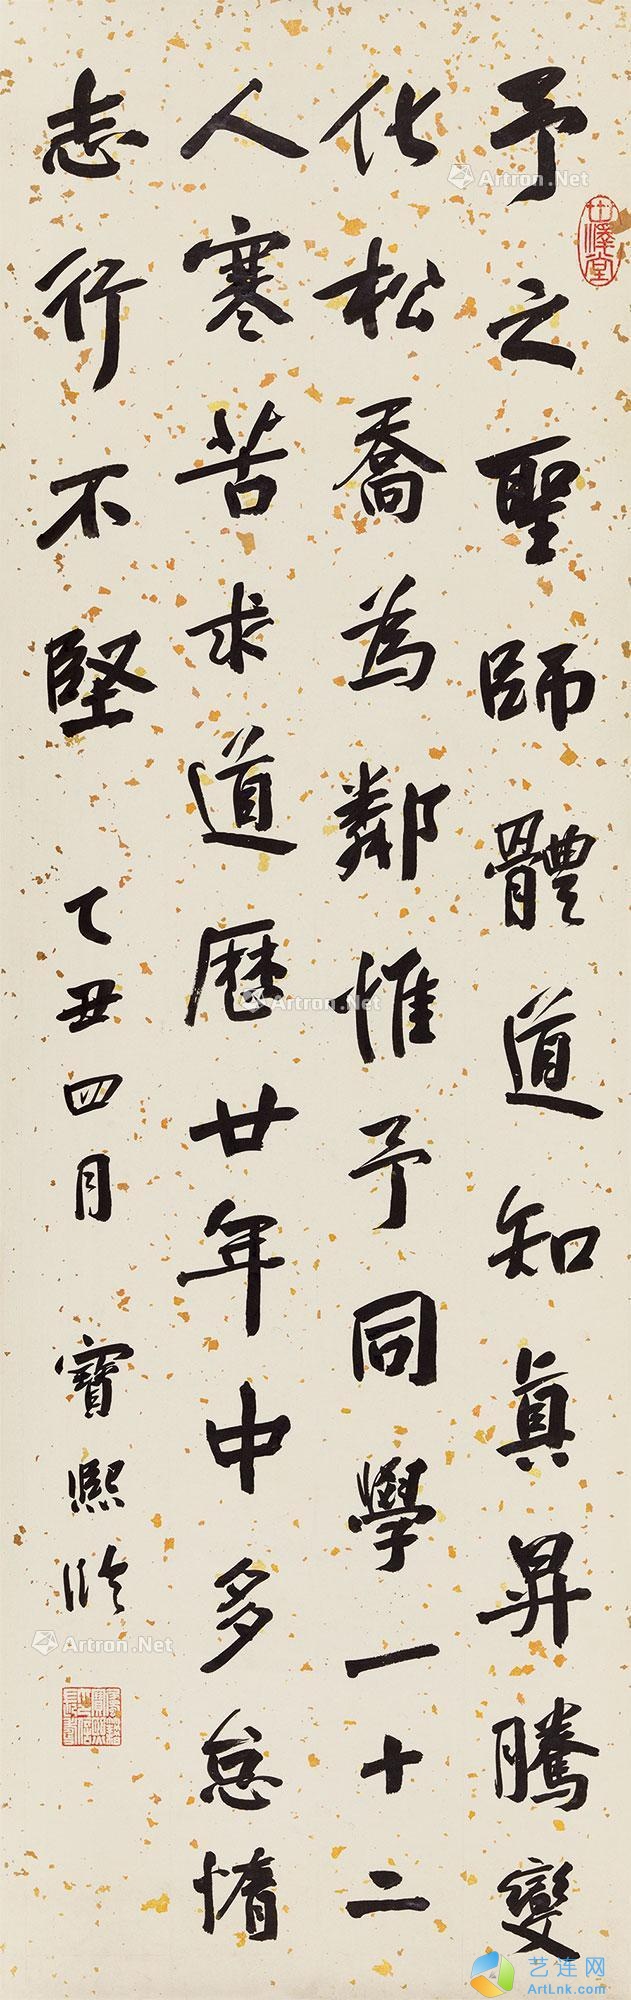 予之聖師體道知真昇騰變
化松喬為鄰惟予同學一十二
人寒苦求道歷廿年中多怠惰
志行不堅 乙丑四月 寶熙臨
世澤堂
Artron.Net
Artron.Net
Artron.Net
艺连网
ArtLnk.com